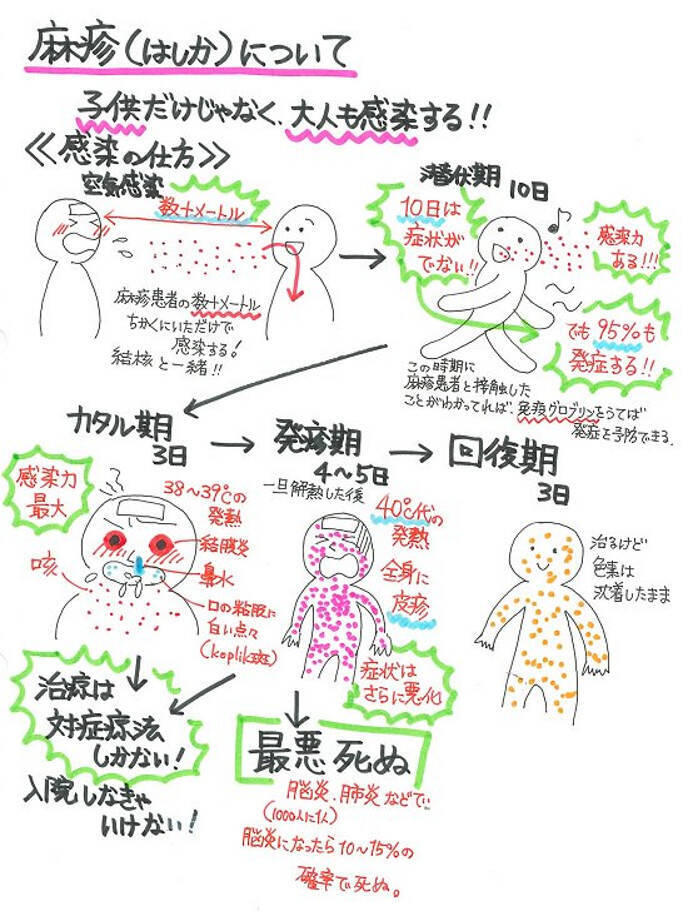 麻疹(はしか)について
子供だけじゃなく、大人も感染する!!
≪感染の仕方≫
空気感染
数十メートル
麻疹患者の数十メートル
ちかくにいただけで
感染する!
結核と一緒!!
潜伏期 10日
10日は
症状が
でない!!
感染力
ある!!!
でも95%も
発症する!!
この時期に
麻疹患者と接触した
ことがわかってれば、免疫グロブリンをうてば
発症を予防できる。
カタル期
3日
感染力
最大
38～39℃の
発熱
結膜炎
鼻水
咳
口の粘膜に
白い点々
(koplik斑)
発疹期
4～5日
一旦解熱した後
40℃代の
発熱
全身に
皮疹
症状は
さらに悪化
回復期
3日
治るけど
色素は
沈着したまま
治療は
対症療法
しかない!
入院しなきゃ
いけない!
最悪死ぬ
脳炎、肺炎などで
(1000人に1人)
脳炎になったら10～15%の
確率で死ぬ。